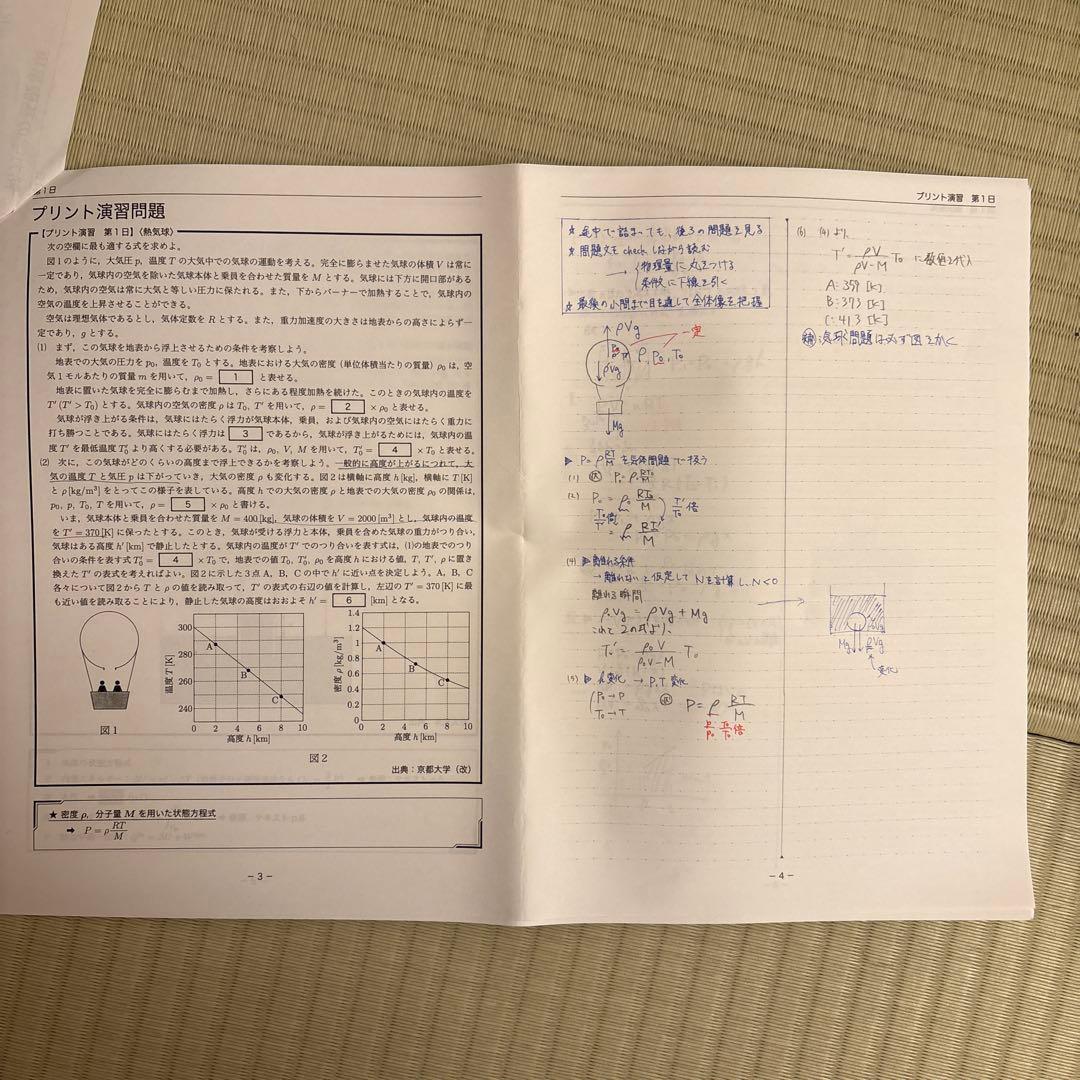 第1日
プリント演習問題
【プリント演習 第1日】〈熱気球〉
次の空欄に最も適する式を求めよ。
図1のように，大気圧 p，温度 T の大気中での気球の運動を考える。完全に膨らませた気球の体積 V は常に
一定であり，気球内の空気を除いた気球本体と乗員を合わせた質量を M とする。気球には下方に開口部がある
ため，気球内の空気は常に大気と等しい圧力に保たれる。また，下からバーナーで加熱することで，気球内の
空気の温度を上昇させることができる。
空気は理想気体であるとし，気体定数を R とする。また，重力加速度の大きさは地表からの高さによらず一
定であり，g とする。
(1) まず，この気球を地表から浮上させるための条件を考察しよう。
地表での大気の圧力を p₀，温度を T₀ とする。地表における大気の密度（単位体積当たりの質量）ρ₀ は，空
気1モルあたりの質量 m を用いて，ρ₀ = 1 と表せる。
地表に置いた気球を完全に膨らむまで加熱し，さらにある程度加熱を続けた。このときの気球内の温度を
T′(T′ > T₀) とする。気球内の空気の密度 ρ は T₀，T′ を用いて，ρ = 2 × ρ₀ と表せる。
気球が浮き上がる条件は，気球にはたらく浮力が気球本体，乗員，および気球内の空気にはたらく重力に
打ち勝つことである。気球にはたらく浮力は 3 であるから，気球が浮き上がるためには，気球内の温
度 T′ を最低温度 T₀′ より高くする必要がある。T₀′ は，ρ₀，V，M を用いて，T₀′ = 4 × T₀ と表せる。
(2) 次に，この気球がどのくらいの高度まで浮上できるかを考察しよう。一般的に高度が上がるにつれて，大
気の温度 T と気圧 p は下がっていき，大気の密度 ρ も変化する。図2は横軸に高度 h[kg]，横軸に T[K]
と ρ[kg/m³] をとってこの様子を表している。高度 h での大気の密度 ρ と地表での大気の密度 ρ₀ の関係は，
p₀，p，T₀，T を用いて，ρ = 5 × ρ₀ と書ける。
いま，気球本体と乗員を合わせた質量を M = 400[kg]，気球の体積を V = 2000[m³] とし，気球内の温度
を T′ = 370[K] に保ったとする。このとき，気球が受ける浮力と本体，乗員を含めた気球の重力がつり合い，
気球はある高度 h′[km] で静止したとする。気球内の温度が T′ でのつり合いを表す式は，(1)の地表でのつり
合いの条件を表す式 T₀′ = 4 × T₀ で，地表での値 T₀，T₀′，ρ₀ を高度 h における値，T，T′，ρ に置き
換えた T′ の表式を考えればよい。図2に示した3点 A，B，C の中で h′ に近い点を決定しよう。A，B，C
各々について図2から T と ρ の値を読み取って，T′ の表式の右辺の値を計算し，左辺の T′ = 370[K] に最
も近い値を読み取ることにより，静止した気球の高度はおおよそ h′ = 6 [km] となる。
図1
温度 T[K]
300
280
260
240
A
B
C
0 2 4 6 8 10
高度 h[km]
密度 ρ[kg/m³]
1.4
1.2
1
0.8
0.6
0.4
0.2
0
A
B
C
0 2 4 6 8 10
高度 h[km]
図2
出典：京都大学（改）
★ 密度 ρ，分子量 M を用いた状態方程式
➡ P = ρ RT/M
− 3 −
プリント演習 第1日
☆ 途中で詰まっても、後ろの問題を見る
☆ 問題文を check しながら読む
→ 物理量に丸をつける
条件に下線を引く
☆ 最後の小問まで目を通して全体像を把握
ρ₀Vg
一定
ρ, p₀, T₀
ρVg
Mg
▶ P = ρ RT/M を気体問題で扱う
(1) P₀ = ρ₀ RT₀/M
(2) P₀ = ρ₀ RT₀/M
T₀/T′ 倍 T′/T₀ 倍
= ρ RT′/M
(4) ▶ 離れる条件
→ 離れないと仮定して N を計算し、N<0
離れる瞬間
ρ₀Vg = ρVg + Mg
これと2の式より、
T₀′ = ρ₀V/(ρ₀V−M) T₀
(5) ▶ 変化 → P, T 変化
P₀ → P
T₀ → T
P = ρ RT/M
P/P₀ T₀/T 倍
(6) (4) より
T′ = ρV/(ρV−M) T₀ に数値を代入
A: 359 [K]
B: 373 [K]
C: 413 [K]
気球問題は必ず図をかく
Mg ρVg
変化
− 4 −